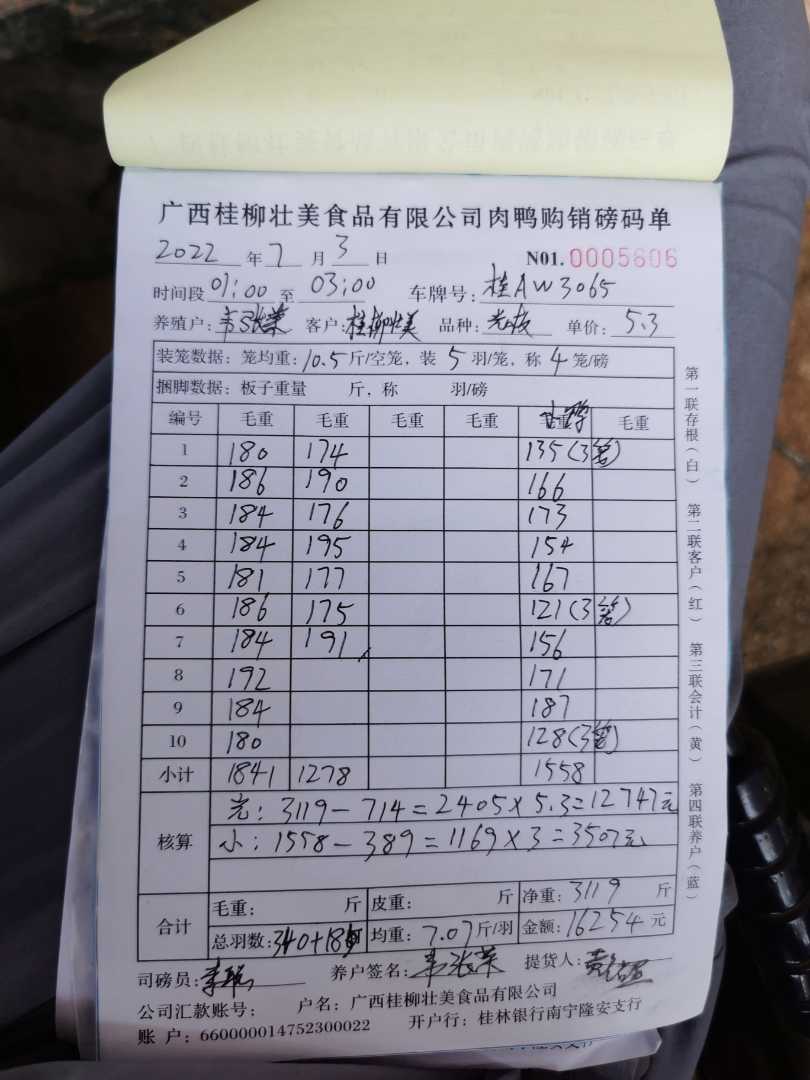 广西桂柳壮美食品有限公司肉鸭购销磅码单
2022 年 7 月 3 日 N01. 0005606
时间段 01:00 至 03:00 车牌号: 桂AW3065
养殖户: 韦张荣 客户: 桂柳壮美 品种: 光皮 单价: 5.3
装笼数据: 笼均重: 10.5 斤/空笼, 装 5 羽/笼, 称 4 笼/磅
捆脚数据: 板子重量 斤, 称 羽/磅
编号 毛重 毛重 毛重 毛重 毛重 毛重
1 180 174 135(3笼)
2 186 190 166
3 184 176 173
4 184 195 154
5 181 177 167
6 186 175 121(3笼)
7 184 191 156
8 192 171
9 184 187
10 180 128(3笼)
小计 1841 1278 1558
核算 光: 3119-714=2405×5.3=12747元
小: 1558-389=1169×3=3507元
合计 毛重: 斤 皮重: 斤 净重: 3119 斤
总羽数: 340+185 均重: 7.07 斤/羽 金额: 16254 元
司磅员: 养户签名: 韦张荣 提货人:
公司汇款账号: 户名: 广西桂柳壮美食品有限公司
账 户: 660000014752300022 开户行: 桂林银行南宁隆安支行
第一联存根(白) 第二联客户(红) 第三联会计(黄) 第四联养户(蓝)